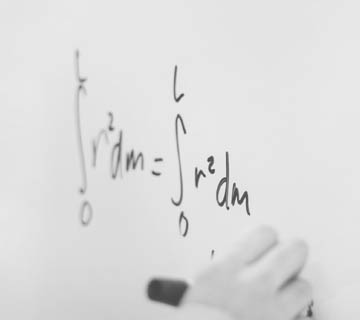 ∫₀ᴸ r²dm = ∫₀ᴸ r²dm